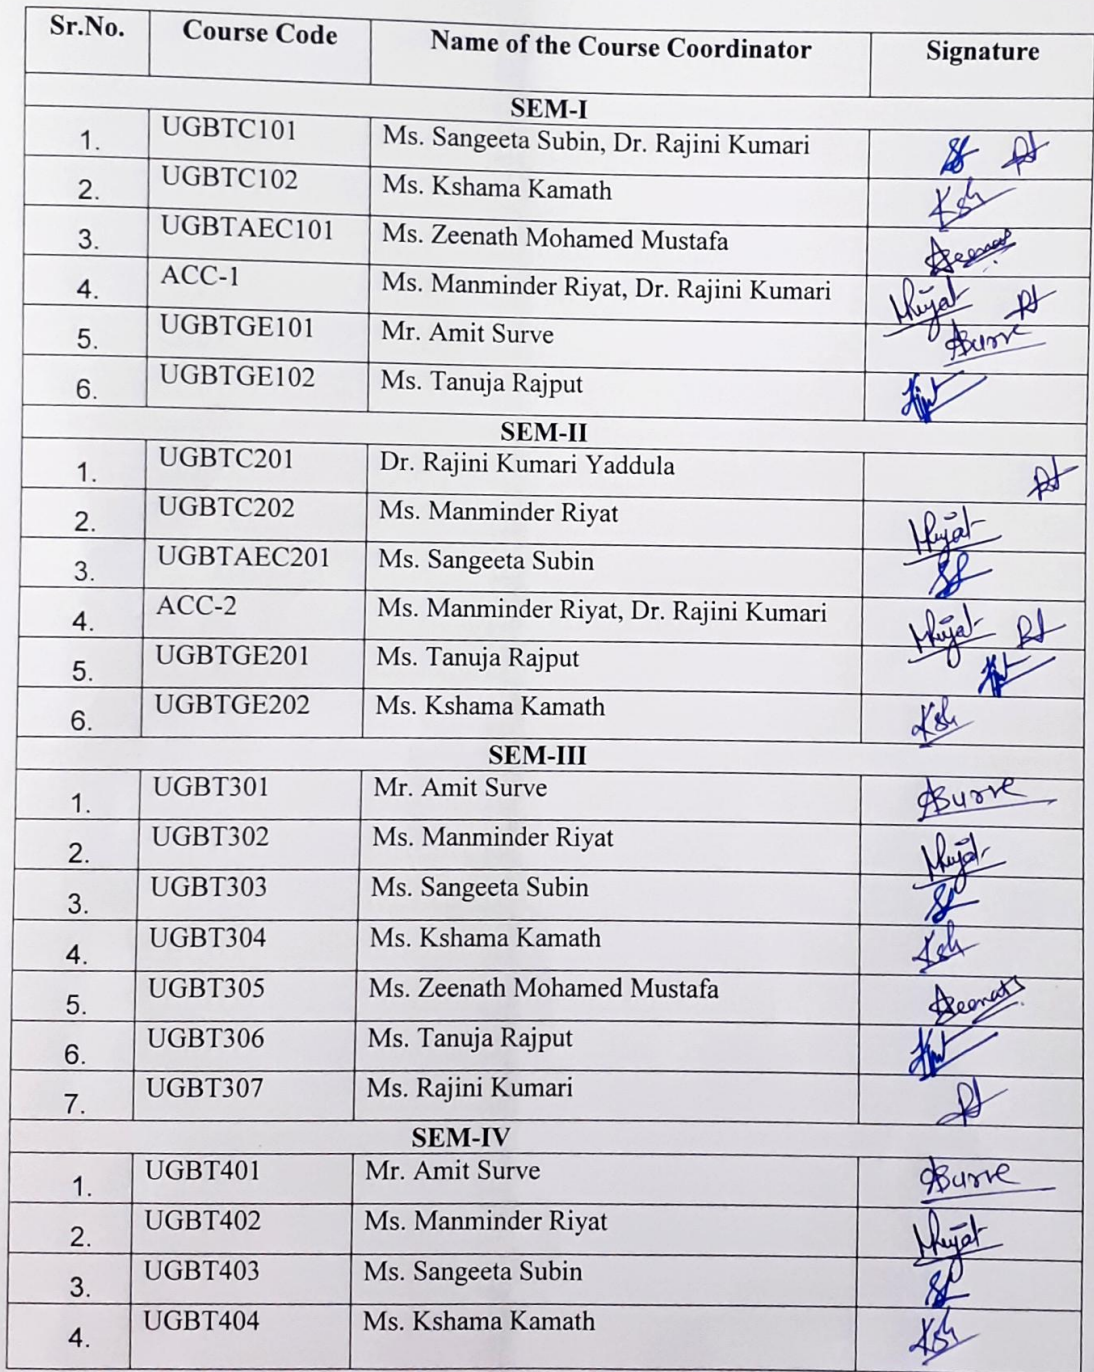 Sr.No. Course Code Name of the Course Coordinator Signature
SEM-I
1. UGBTC101 Ms. Sangeeta Subin, Dr. Rajini Kumari
2. UGBTC102 Ms. Kshama Kamath Ksh
3. UGBTAEC101 Ms. Zeenath Mohamed Mustafa
4. ACC-1 Ms. Manminder Riyat, Dr. Rajini Kumari
5. UGBTGE101 Mr. Amit Surve ASurve
6. UGBTGE102 Ms. Tanuja Rajput
SEM-II
1. UGBTC201 Dr. Rajini Kumari Yaddula
2. UGBTC202 Ms. Manminder Riyat
3. UGBTAEC201 Ms. Sangeeta Subin
4. ACC-2 Ms. Manminder Riyat, Dr. Rajini Kumari
5. UGBTGE201 Ms. Tanuja Rajput
6. UGBTGE202 Ms. Kshama Kamath Ksh
SEM-III
1. UGBT301 Mr. Amit Surve ASurve
2. UGBT302 Ms. Manminder Riyat
3. UGBT303 Ms. Sangeeta Subin
4. UGBT304 Ms. Kshama Kamath Ksh
5. UGBT305 Ms. Zeenath Mohamed Mustafa
6. UGBT306 Ms. Tanuja Rajput
7. UGBT307 Ms. Rajini Kumari
SEM-IV
1. UGBT401 Mr. Amit Surve ASurve
2. UGBT402 Ms. Manminder Riyat
3. UGBT403 Ms. Sangeeta Subin
4. UGBT404 Ms. Kshama Kamath Ksh